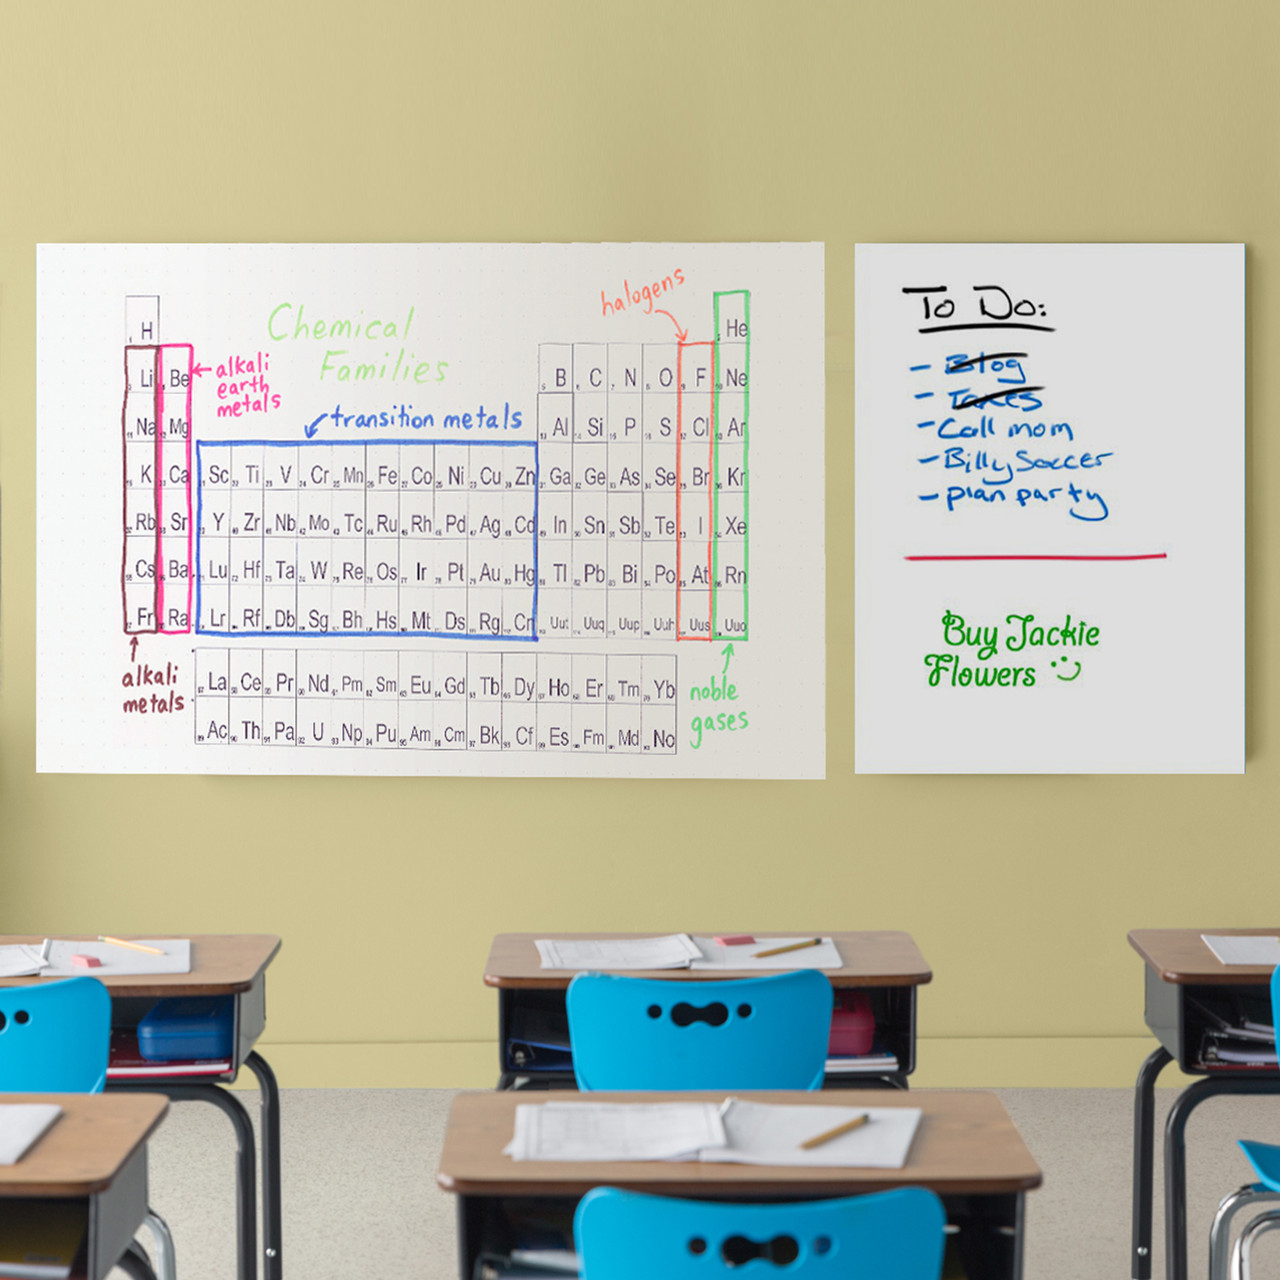 Chemical
Families
halogens
H He
Li Be B C N O F Ne
alkali
earth
metals
transition metals
Na Mg Al Si P S Cl Ar
K Ca Sc Ti V Cr Mn Fe Co Ni Cu Zn Ga Ge As Se Br Kr
Rb Sr Y Zr Nb Mo Tc Ru Rh Pd Ag Cd In Sn Sb Te I Xe
Cs Ba Lu Hf Ta W Re Os Ir Pt Au Hg Tl Pb Bi Po At Rn
Fr Ra Lr Rf Db Sg Bh Hs Mt Ds Rg Cn Uut Uuq Uup Uuh Uus Uuo
La Ce Pr Nd Pm Sm Eu Gd Tb Dy Ho Er Tm Yb
Ac Th Pa U Np Pu Am Cm Bk Cf Es Fm Md No
alkali
metals
noble
gases
To Do:
- Blog
- Taxes
- Call mom
- Billy Soccer
- plan party
Buy Jackie
Flowers